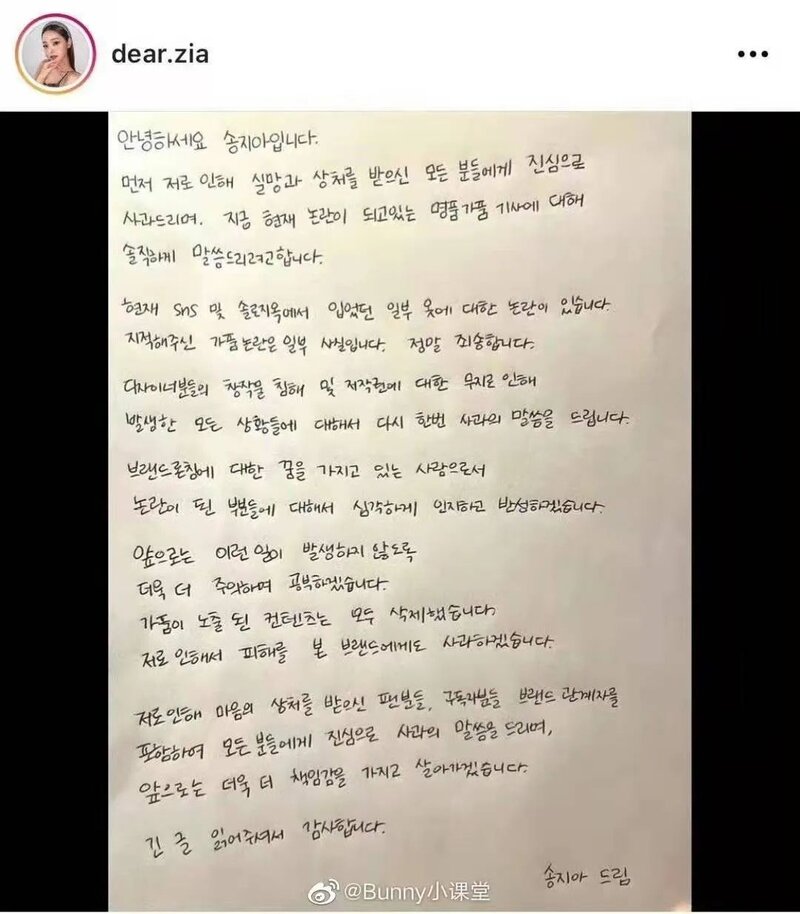 dear.zia
안녕하세요 송지아입니다.
먼저 저로 인해 실망과 상처를 받으신 모든 분들에게 진심으로
사과드리며. 지금 현재 논란이 되고있는 명품가품 기사에 대해
솔직하게 말씀드리려고합니다.
현재 SNS 및 솔로지옥에서 입었던 일부 옷에 대한 논란이 있습니다.
지적해주신 가품논란은 일부 사실입니다. 정말 죄송합니다.
디자이너분들의 창작물 침해 및 저작권에 대한 무지로 인해
발생한 모든 상황들에 대해서 다시 한번 사과의 말씀을 드립니다.
브랜드론칭에 대한 꿈을 가지고 있는 사람으로서
논란이 된 부분들에 대해서 심각하게 인지하고 반성하겠습니다.
앞으로는 이런 일이 발생하지 않도록
더욱 더 주의하며 공부하겠습니다.
가품이 노출 된 컨텐츠는 모두 삭제했습니다.
저로 인해서 피해를 본 브랜드에게도 사과하겠습니다.
저로인해 마음의 상처를 받으신 팬분들, 구독자분들 브랜드 관계자를
포함하여 모든분들에게 진심으로 사과의 말씀을 드리며,
앞으로는 더욱 더 책임감을 가지고 살아가겠습니다.
긴 글 읽어주셔서 감사합니다.
송지아 드림
@Bunny小课堂